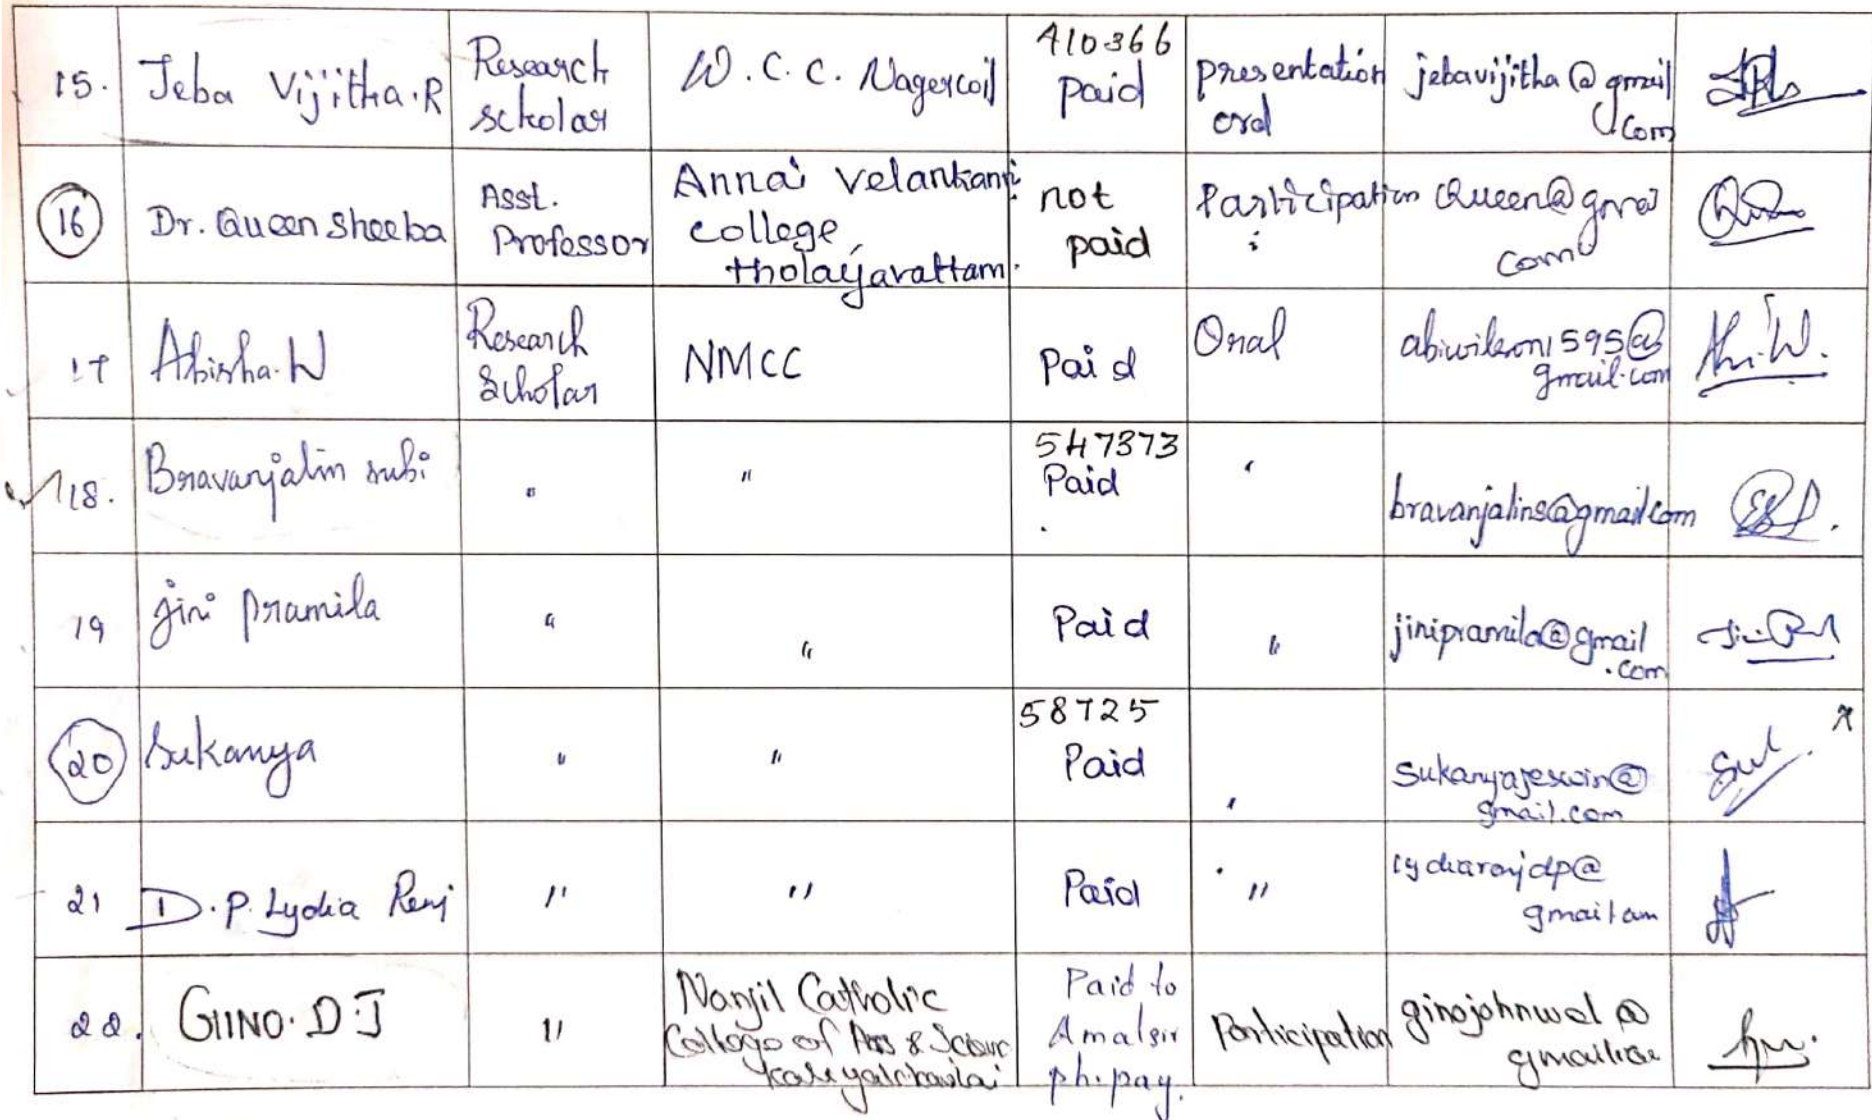 15.
Jeba Vijitha.R
Research
scholar
W.C.C. Nagercoil
410366
paid
presentation
oral
jebavijitha@gmail
com
16
Dr. Queen Sheeba
Asst.
Professor
Annai Velankanni
college,
tholayavattam.
not
paid
Participation
Queen@gmai
com
17
Abisha.W
Research
Scholar
NMCC
Paid
Oral
abiwilson1595@
gmail.com
Abi.W.
18.
Bravanjalin subi
"
"
547373
Paid
"
bravanjalins@gmail.com
19
jini pramila
"
"
Paid
"
jinipramila@gmail
.com
20
Sukanya
"
"
58725
Paid
"
Sukanyajeswin@
gmail.com
21
D.P. Lydia Renj
"
"
Paid
"
gmail
22.
GIINO.D J
"
Nanjil Catholic
College of Ars & Scienc
Paid to
Amalsir
ph.pay.
Participation
ginojohnwel@